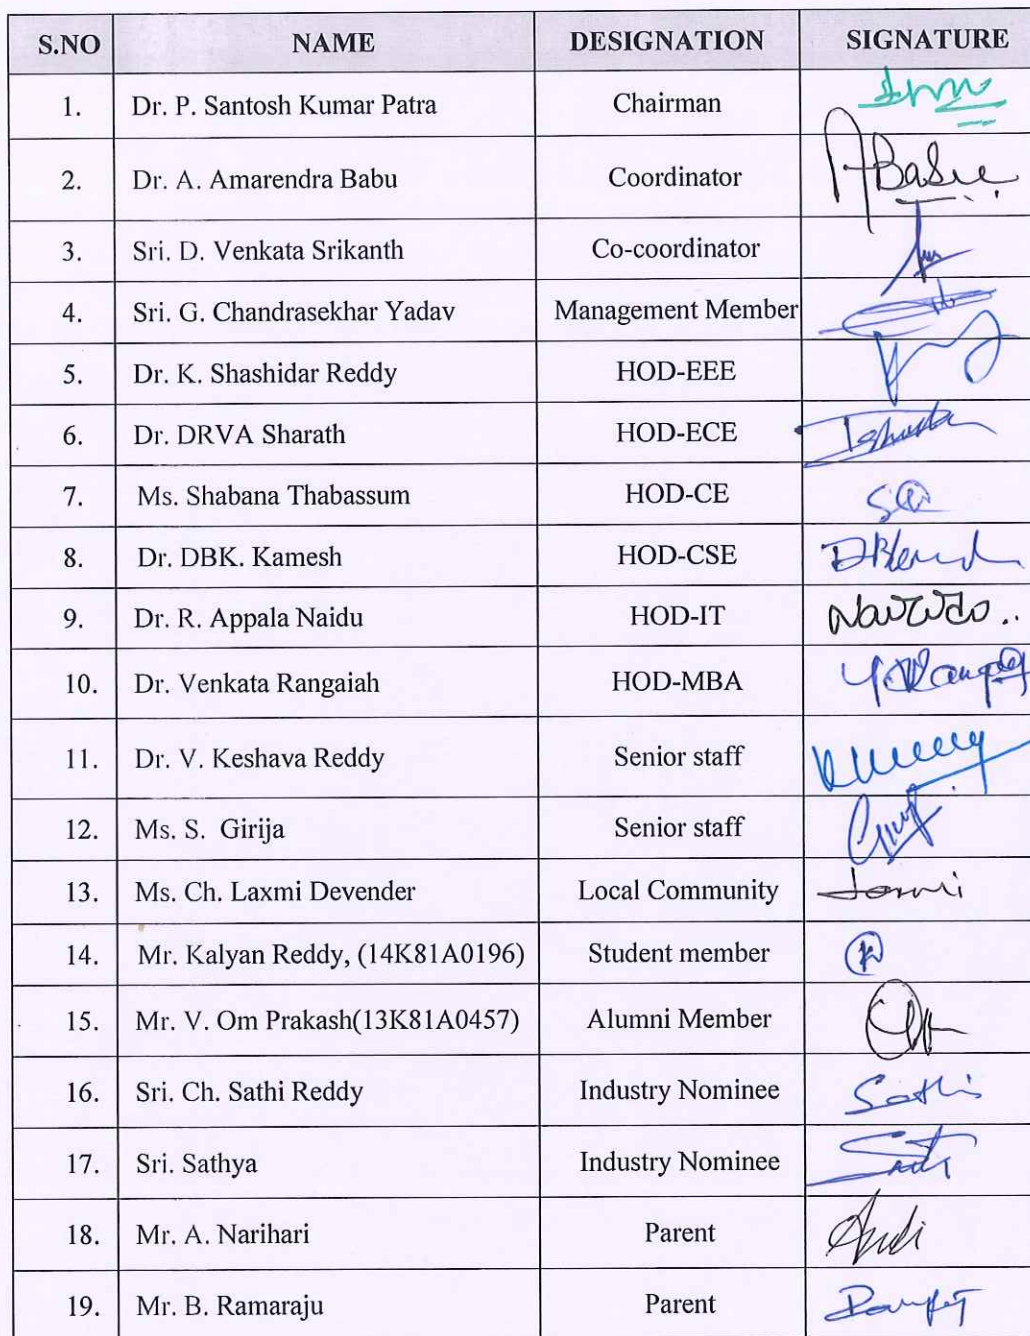 S.NO NAME DESIGNATION SIGNATURE
1. Dr. P. Santosh Kumar Patra Chairman
2. Dr. A. Amarendra Babu Coordinator
3. Sri. D. Venkata Srikanth Co-coordinator
4. Sri. G. Chandrasekhar Yadav Management Member
5. Dr. K. Shashidar Reddy HOD-EEE
6. Dr. DRVA Sharath HOD-ECE
7. Ms. Shabana Thabassum HOD-CE
8. Dr. DBK. Kamesh HOD-CSE
9. Dr. R. Appala Naidu HOD-IT
10. Dr. Venkata Rangaiah HOD-MBA
11. Dr. V. Keshava Reddy Senior staff
12. Ms. S. Girija Senior staff
13. Ms. Ch. Laxmi Devender Local Community
14. Mr. Kalyan Reddy, (14K81A0196) Student member
15. Mr. V. Om Prakash(13K81A0457) Alumni Member
16. Sri. Ch. Sathi Reddy Industry Nominee Sathi
17. Sri. Sathya Industry Nominee
18. Mr. A. Narihari Parent
19. Mr. B. Ramaraju Parent